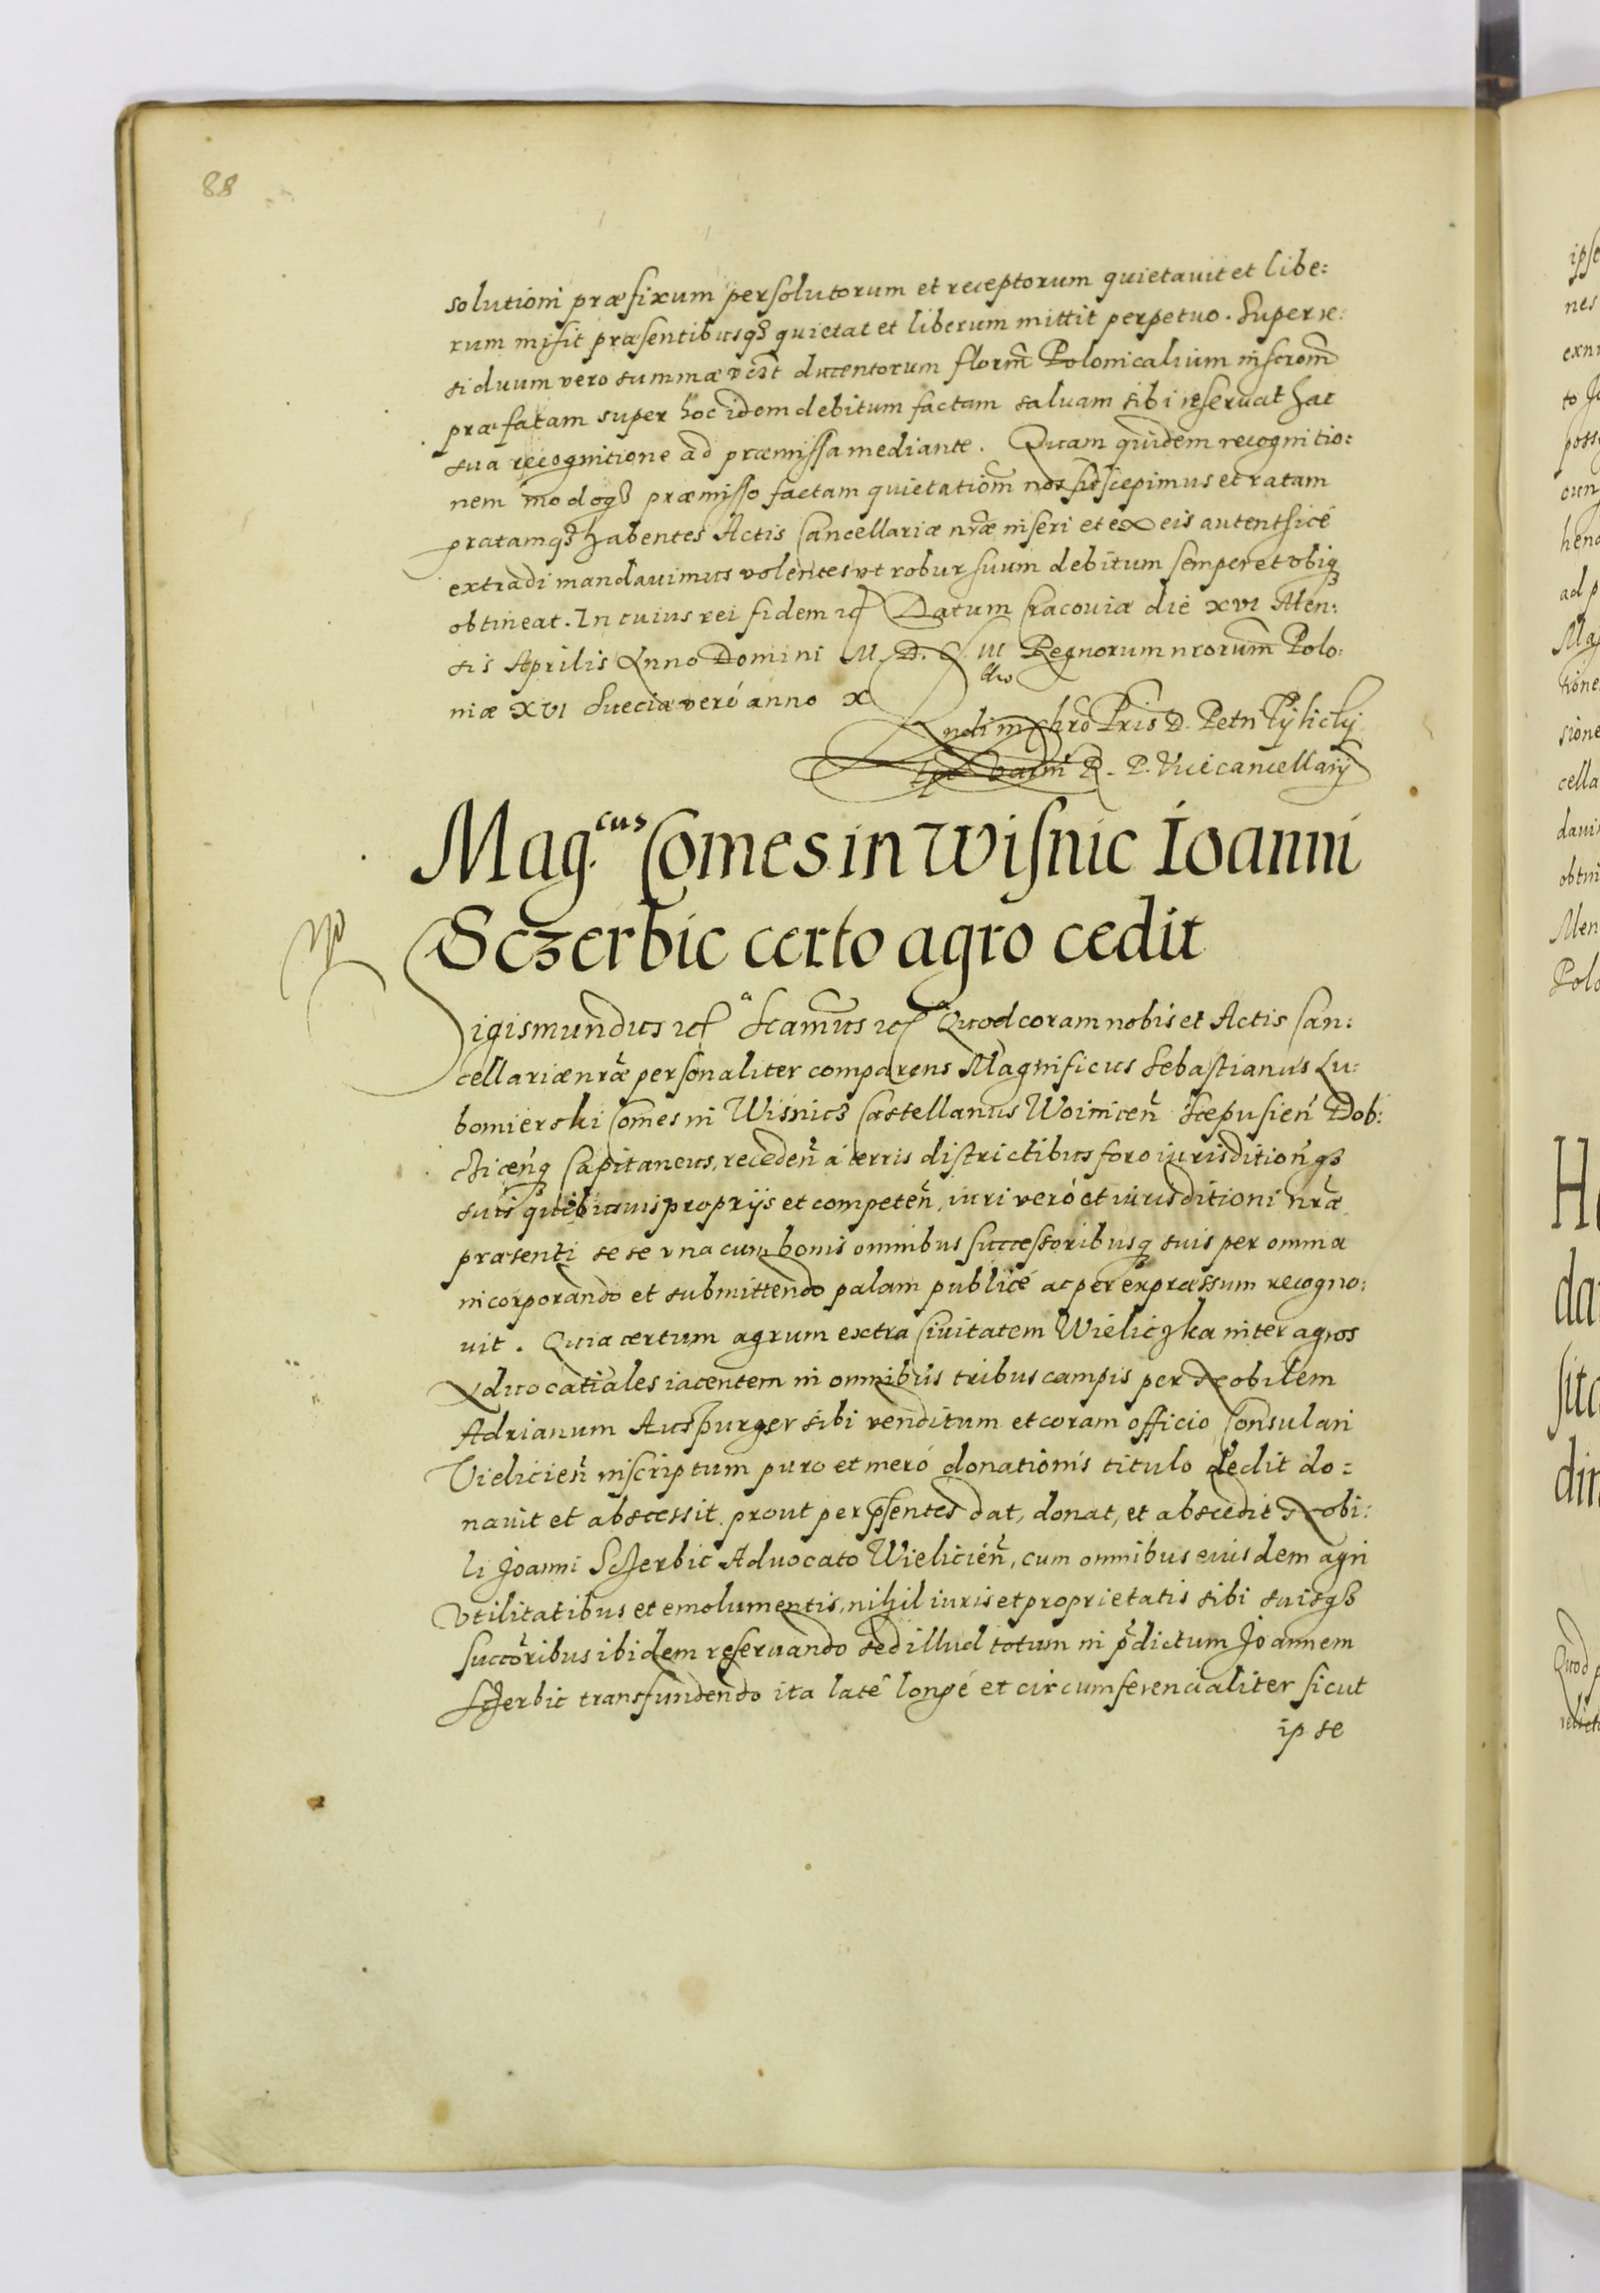 88
solutioni præfixum persolutorum et receptorum quietavit et libe:
rum misit præsentibusqꝫ quietat et liberum mittit perpetuo. Super re:
siduum vero summæ vczt ducentorum florm̃ Polonicalium inscrom̃
præfatam super hoc idem debitum factam salvam sibi reservat hac
sua recognitione ad præmissa mediante. Quam quidem recognitio:
nem modoqꝫ præmisso factam quietatiom̃ nos suscepimus et ratam
gratamqꝫ habentes Actis Cancellariæ nr̃æ inseri et ex eis autenthicè
extradi mandavimus volentes vt robur suum debitum semper et vbiqꝫ
obtineat. In cuius rei fidem ꝛc̃ Datum Cracoviæ die XVI Men:
sis Aprilis Anno Domini M. D. C III Regnorum nrorum̃ Polo:
niæ XVI Sueciæ verò anno X
Rndi in Chro Pris D. Petri Tylicky
R. P. Vicecancellarij
Mag.cus Comes in Wisnic Ioanni
Sczerbic certo agro cedit
Sigismundus ꝛc̃ Scam̃us ꝛc̃ Quod coram nobis et Actis Can:
cellariæ nr̃æ personaliter comparens Magnificus Sebastianus Lu:
bomierski Comes in Wisnicz Castellanus Woinicen̄ Scepusien̄ Dob:
czicen̄qꝫ Capitaneus, receden̄ à terris districtibus foro iurisdition̄qꝫ
suis quibusvis proprijs et competen̄, iuri verò et iurisditioni nr̃æ
præsenti se se vna cum bonis omnibus successoribusqꝫ suis per omnia
incorporando et submittendo palam publicè ac per expræssum recogno:
vit. Quia certum agrum extra Civitatem Wieliczka inter agros
Advocatiales iacentem in omnibus tribus campis per Nobilem
Adrianum Auspurger sibi venditum et coram officio Consulari
Vielicien̄ inscriptum puro et merò donationis titulo dedit do:
navit et abscessit prout per pñsentes dat, donat, et abscedit Nobi:
li Joanni Sczerbic Advocato Wielicien̄, cum omnibus eiusdem agri
vtilitatibus et emolumentis, nihil iuris et proprietatis sibi suisqꝫ
succõribus ibidem reservando sed illud totum in p̃dictum Joannem
Sczerbic transfundendo ita latè longè et circumferencialiter sicut
ipse